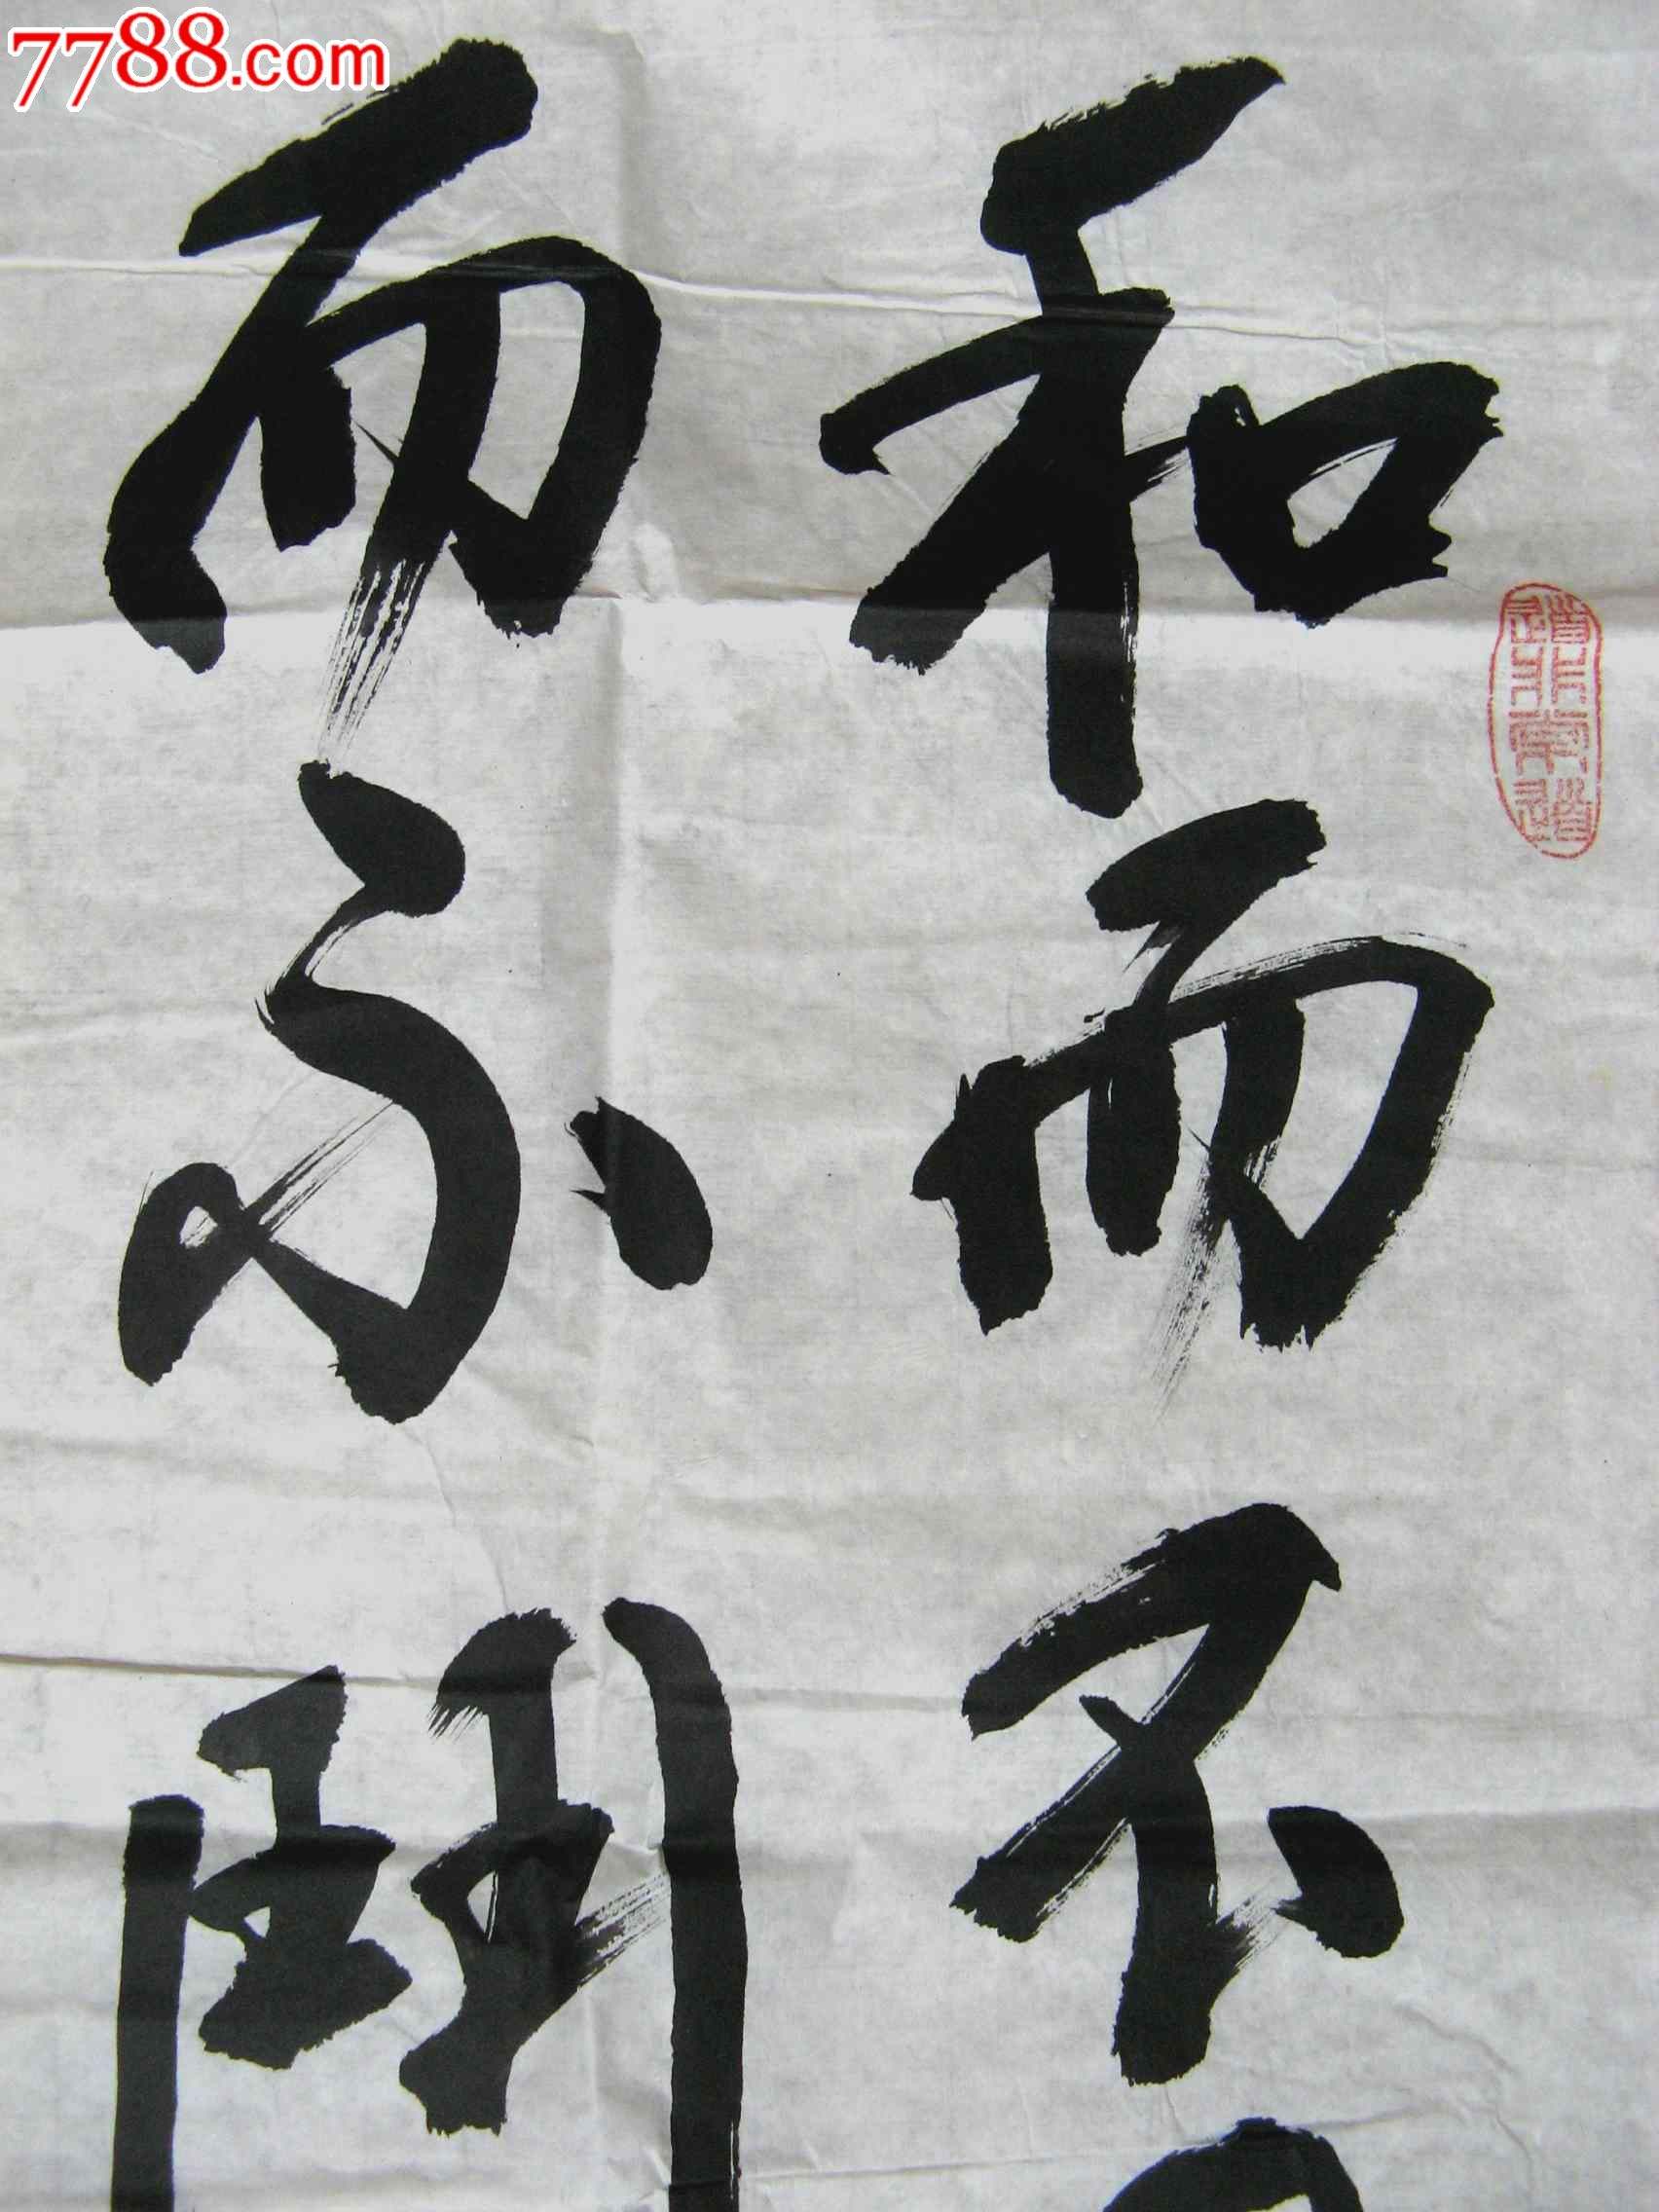 7788.com
和而不
而不鬥